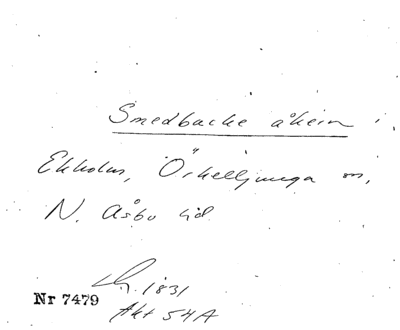 Smedbacke åkern i
Ekholm, Örkelljunga sn,
N. Åsbo hd
Lm. 1831
Nr 7479
Akt 54A